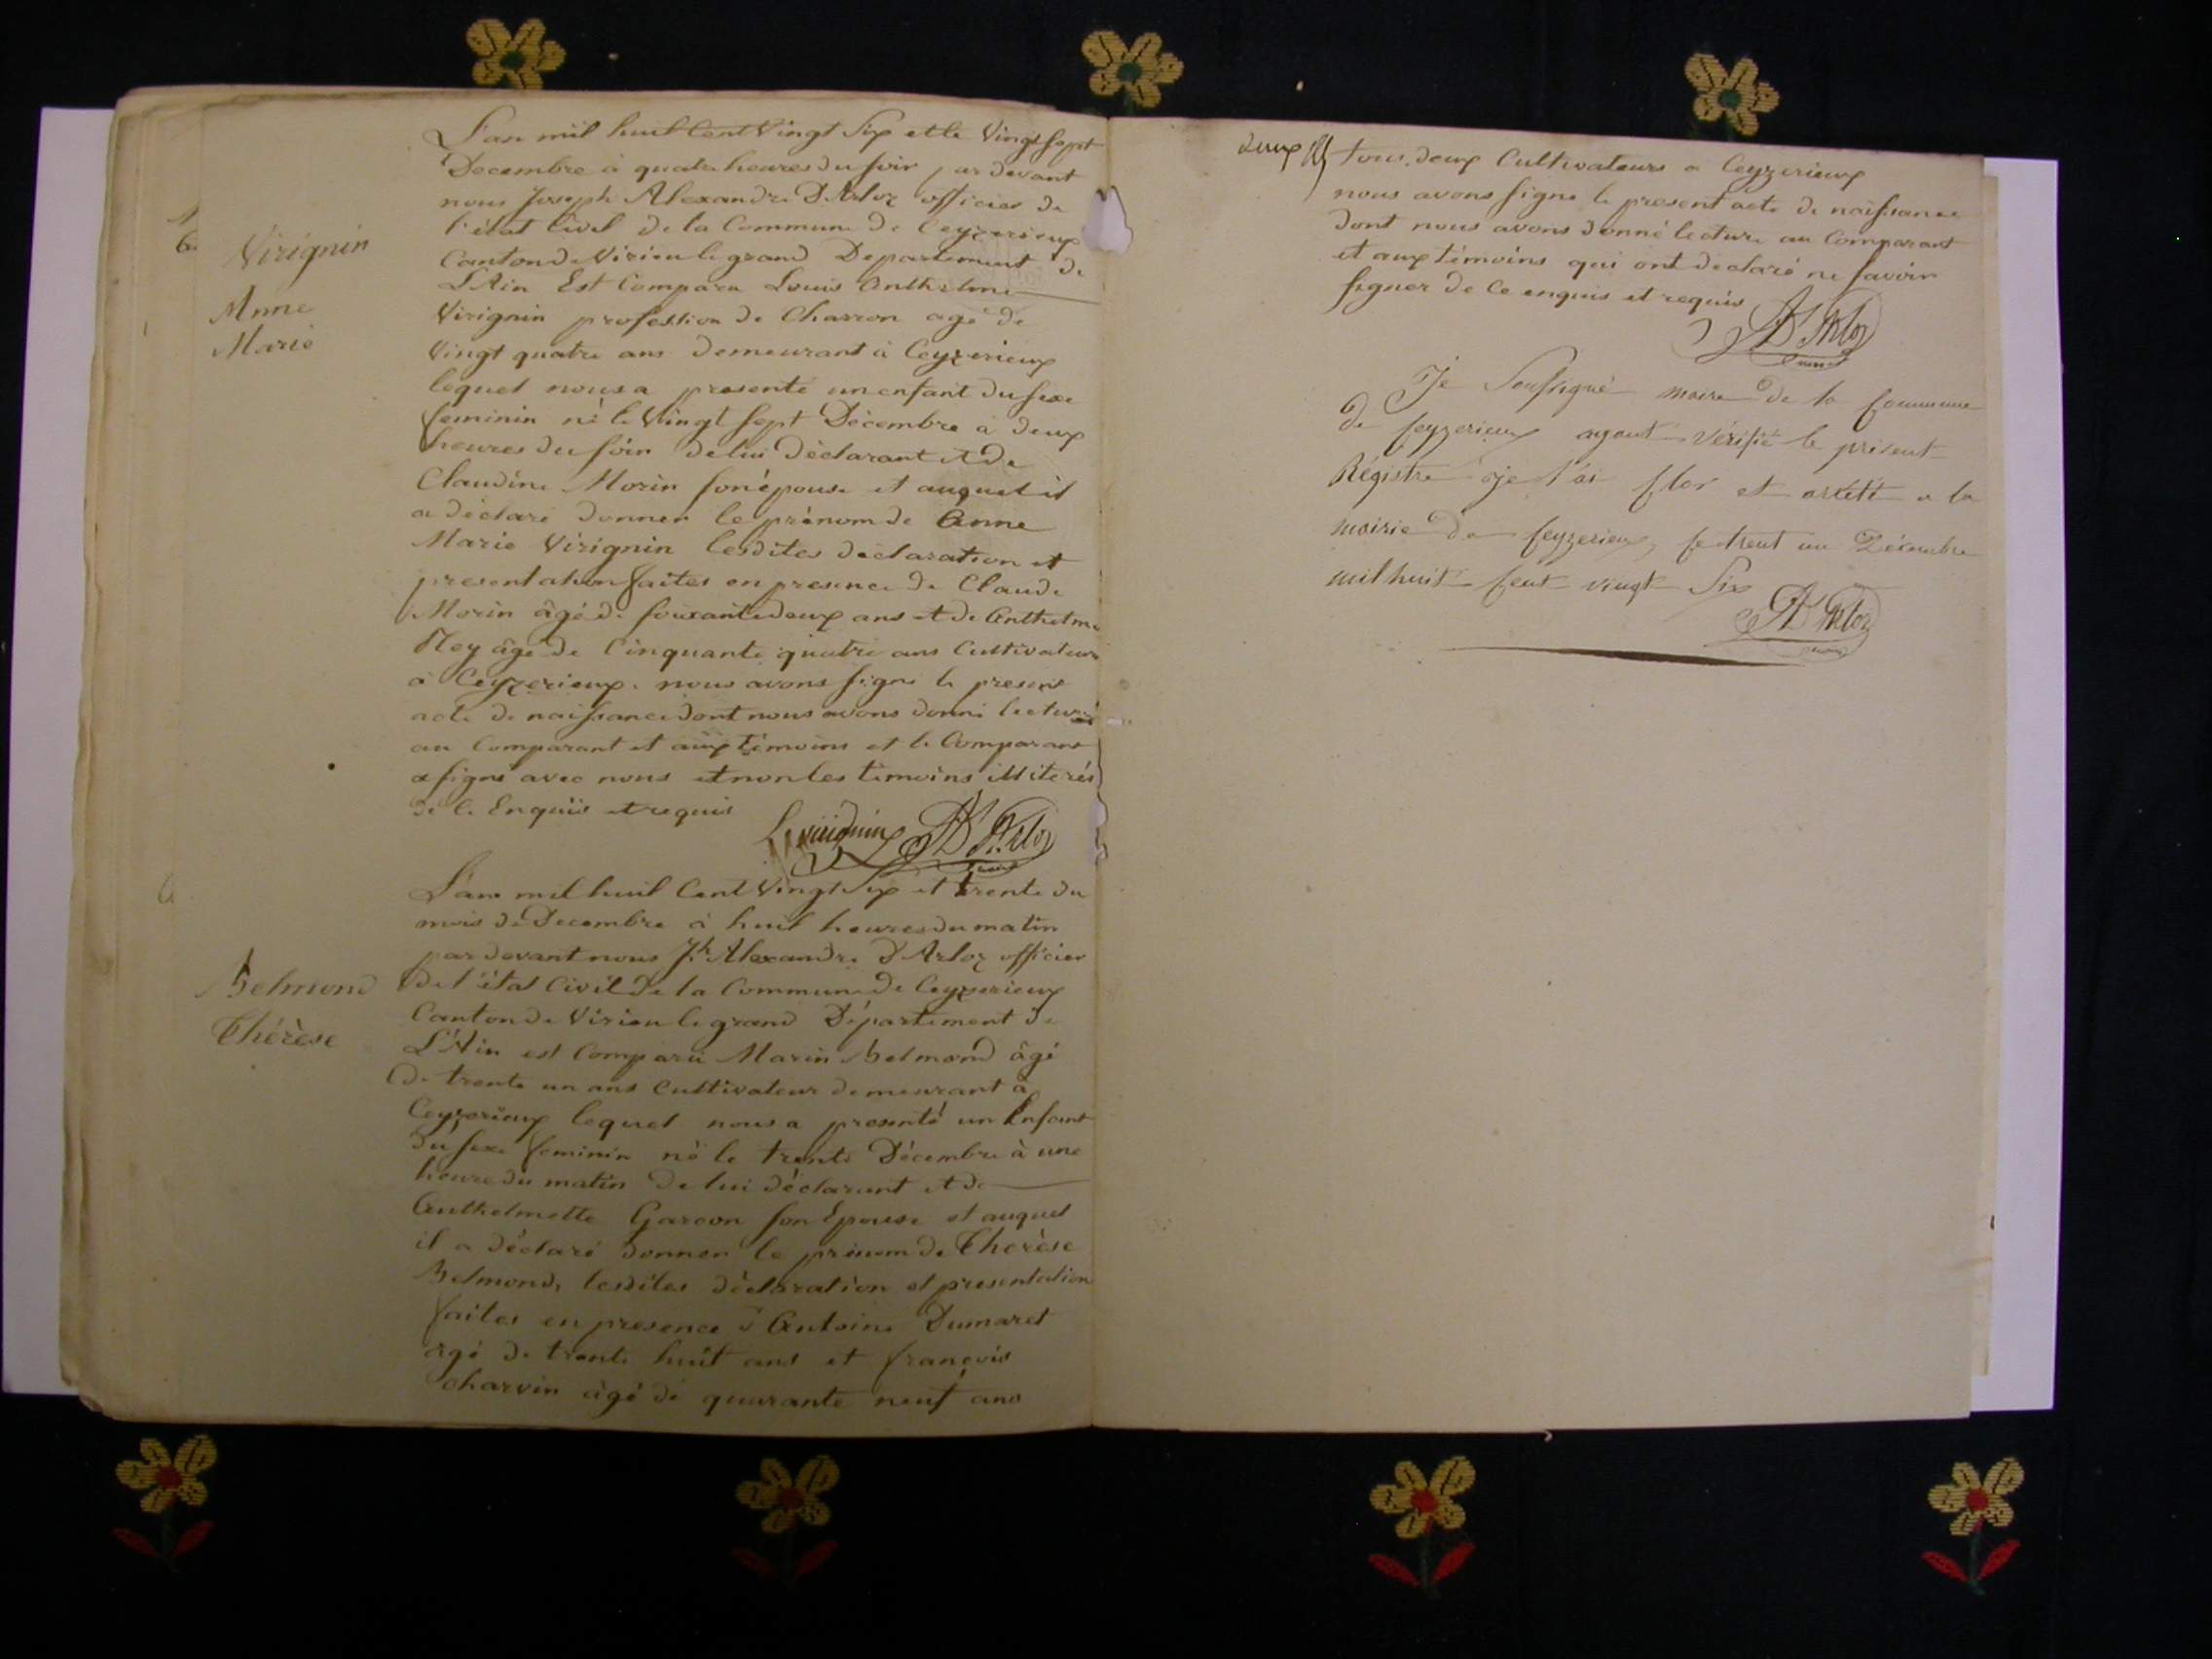 L'an mil huit Cent Vingt Six et le Vingt sept
Decembre à quatre heures du soir par devant
nous Joseph Alexandre D'Arloz officier de
l'état Civil de la Commune de Ceyzerieux
Canton de Virieu le grand Departement de
L'Ain Est Comparu Louis Anthelme
Virignin
Anne
Marie
Virignin profession de Charron agé de
Vingt quatre ans demeurant à Ceyzerieux
lequel nous a presenté un enfant du sexe
feminin né le Vingt sept Décembre à deux
heures du soir de lui déclarant et de
Claudine Morin son épouse et auquel il
a déclaré donner le prénom de Anne
Marie Virignin lesdites déclaration et
presentation faites en presence de Claude
Morin âgé de soixante deux ans et de Anthelme
Rey âgé de Cinquante quatre ans Cultivateurs
à Ceyzerieux. nous avons signé le present
acte de naissance dont nous avons donné lecture
au Comparant et aux témoins et le Comparant
a signé avec nous et non les témoins illiterés
de Ce Enquis et requis
L Virignin D'Arloz
L'an mil huit Cent Vingt Six et trente du
mois de Decembre à huit heures du matin
par devant nous Jh Alexandre D'Arloz officier
de l'état Civil de la Commune de Ceyzerieux
Canton de Virieu le grand Département de
L'Ain est Comparu Marin Belmond âgé
Belmond
Thérèse
de trente un ans Cultivateur demeurant à
Ceyzerieux lequel nous a presenté un Enfant
du sexe feminin né le trente Décembre à une
heure du matin de lui déclarant et de
Anthelmette Garcon son Epouse et auquel
il a déclaré donner le prénom de Thérèse
Belmond, lesdites déclaration et presentation
faites en presence d'Antoine Dumaret
âgé de trente huit ans et françois
Charvin âgé de quarante neuf ans
deux tous deux Cultivateurs a Ceyzerieux
nous avons signé le present acte de naissance
dont nous avons donné lecture au Comparant
et aux témoins qui ont declaré ne savoir
signer de Ce enquis et requis
D'Arloz
Je Soussigné maire de la Commune
de Ceyzerieux ayant vérifié le présent
Régistre je l'ai Clor et arrêté a la
mairie de Ceyzerieux, Ce trent un Décembre
mil huit Cent vingt Six
D'Arloz